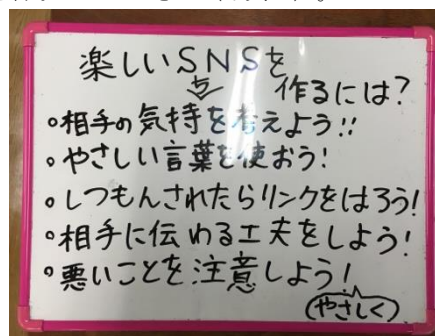 楽しいSNSを
作るには?
○相手の気持を考えよう!!
○やさしい言葉を使おう!
○しつもんされたらリンクをはろう!
○相手に伝わる工夫をしよう!
○悪いことを注意しよう!
(やさしく)